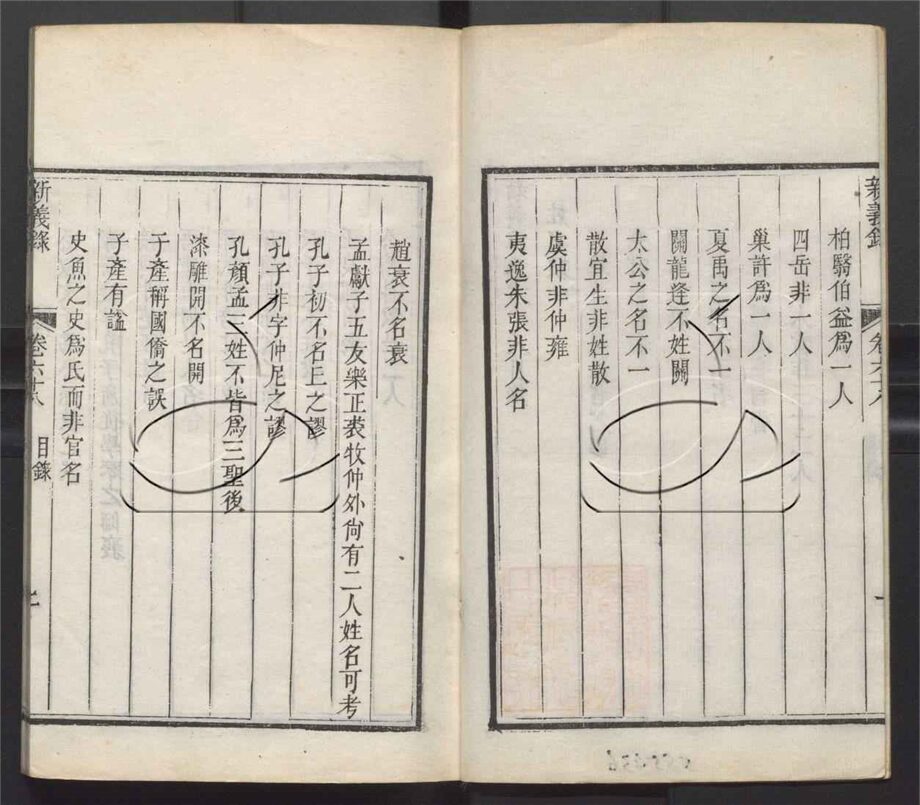 新義錄
柏翳伯益爲一人
四岳非一人
巢許爲一人
夏禹之名不一
關龍逄不姓關
太公之名不一
散宜生非姓散
虞仲非仲雍
夷逸朱張非人名
趙衰不名衰
孟獻子五友樂正裘牧仲外尙有二人姓名可考
孔子初不名丘之謬
孔子非字仲尼之謬
孔顏孟三姓不皆爲三聖後
漆雕開不名開
子產稱國僑之誤
子產有諡
史魚之史爲氏而非官名
新義錄
卷六十八
目錄